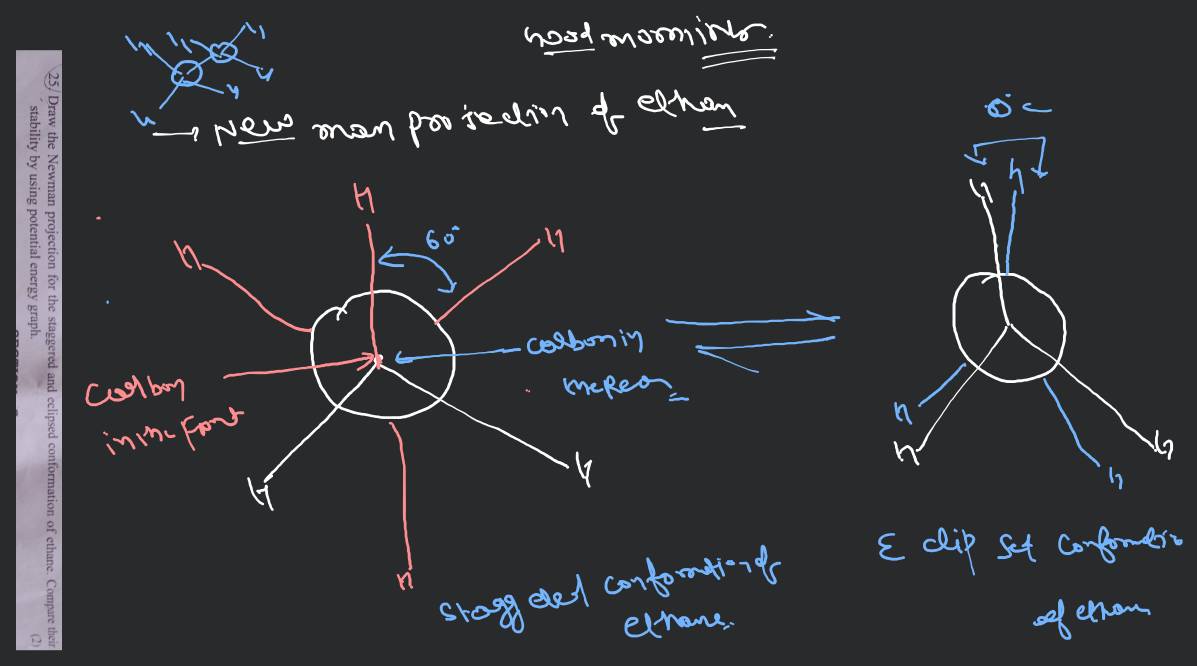 Good morning.
→ New man projection of ethan
0°c
H
H
H
60°
H
H
H
H
H
carbon in
the Rear
Carbon
in the Front
H
H
H
H
H
H
H
Staggered conformation of
ethane.
Eclipsed conformation
of ethane
25. Draw the Newman projection for the staggered and eclipsed conformation of ethane. Compare their
stability by using potential energy graph. (2)